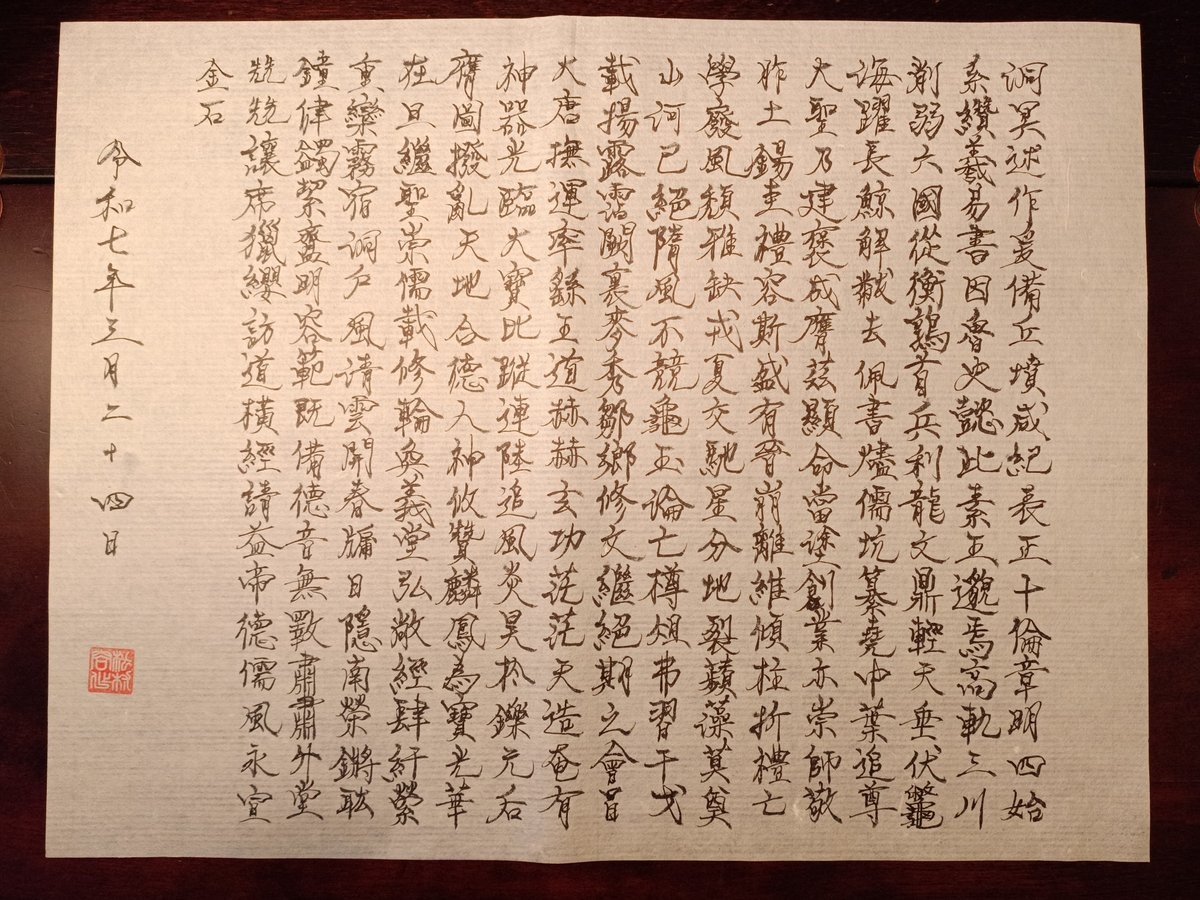 洞冥述作爰備丘墳咸紀表正十倫章明四始
系纘羲易書因魯史懿此素王邈焉高軌三川
削弱六國從衡鶉首兵利龍文鼎輕天垂伏鼈
海躍長鯨解黻去佩書燼儒坑纂堯中葉追尊
大聖乃建褒成膺茲顯命當塗創業亦崇師敬
胙土錫圭禮容斯盛有晉崩離維傾柱折禮亡
學廢風頹雅缺戎夏交馳星分地裂蘋藻莫奠
山河已絕隋風不競龜玉淪亡樽俎弗習干戈
載揚露霑闕裏麥秀鄒鄉修文繼絕期之會昌
大唐撫運率繇王道赫赫玄功茫茫天造奄有
神器光臨大寶比蹤連陸追風炎昊於鑠元后
膺圖撥亂天地合德人神攸贊麟鳳為寶光華
在旦繼聖崇儒載修輪奐義堂弘敞經肆紆縈
重欒霧宿洞戶風清雲開春牖日隱南榮鏘耾
鐘律蠲絜齍明容範既備德音無斁肅肅外堂
兢兢讓席獵纓訪道橫經請益帝德儒風永宣
金石
令和七年三月二十四日